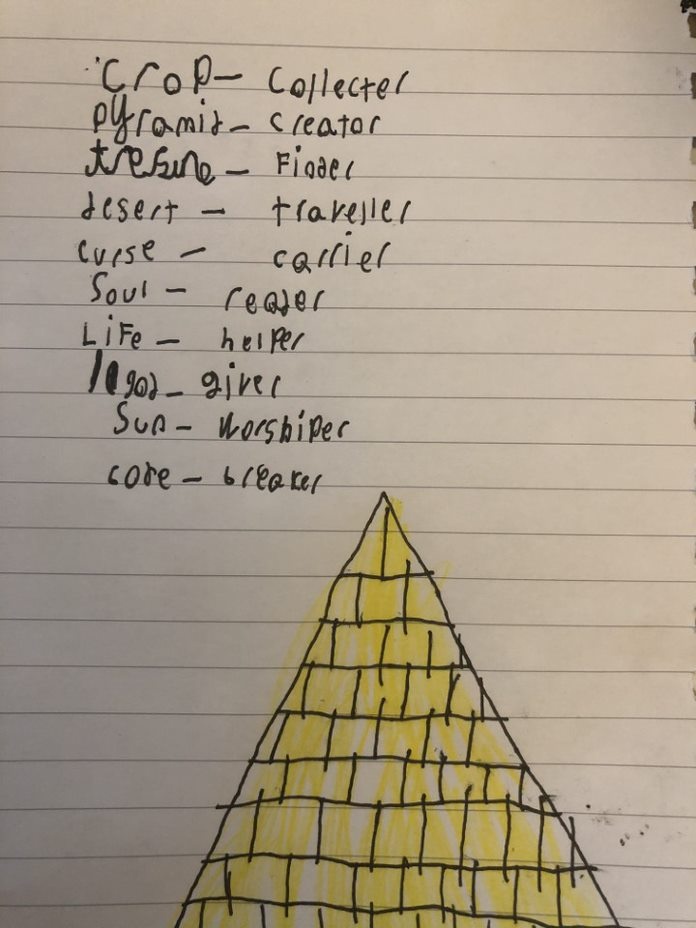 Crop - Collecter
Pyramid - Creator
tresure - Finder
desert - traveller
curse - carrier
Soul - reader
Life - helper
god - giver
Sun - Worshiper
code - breaker